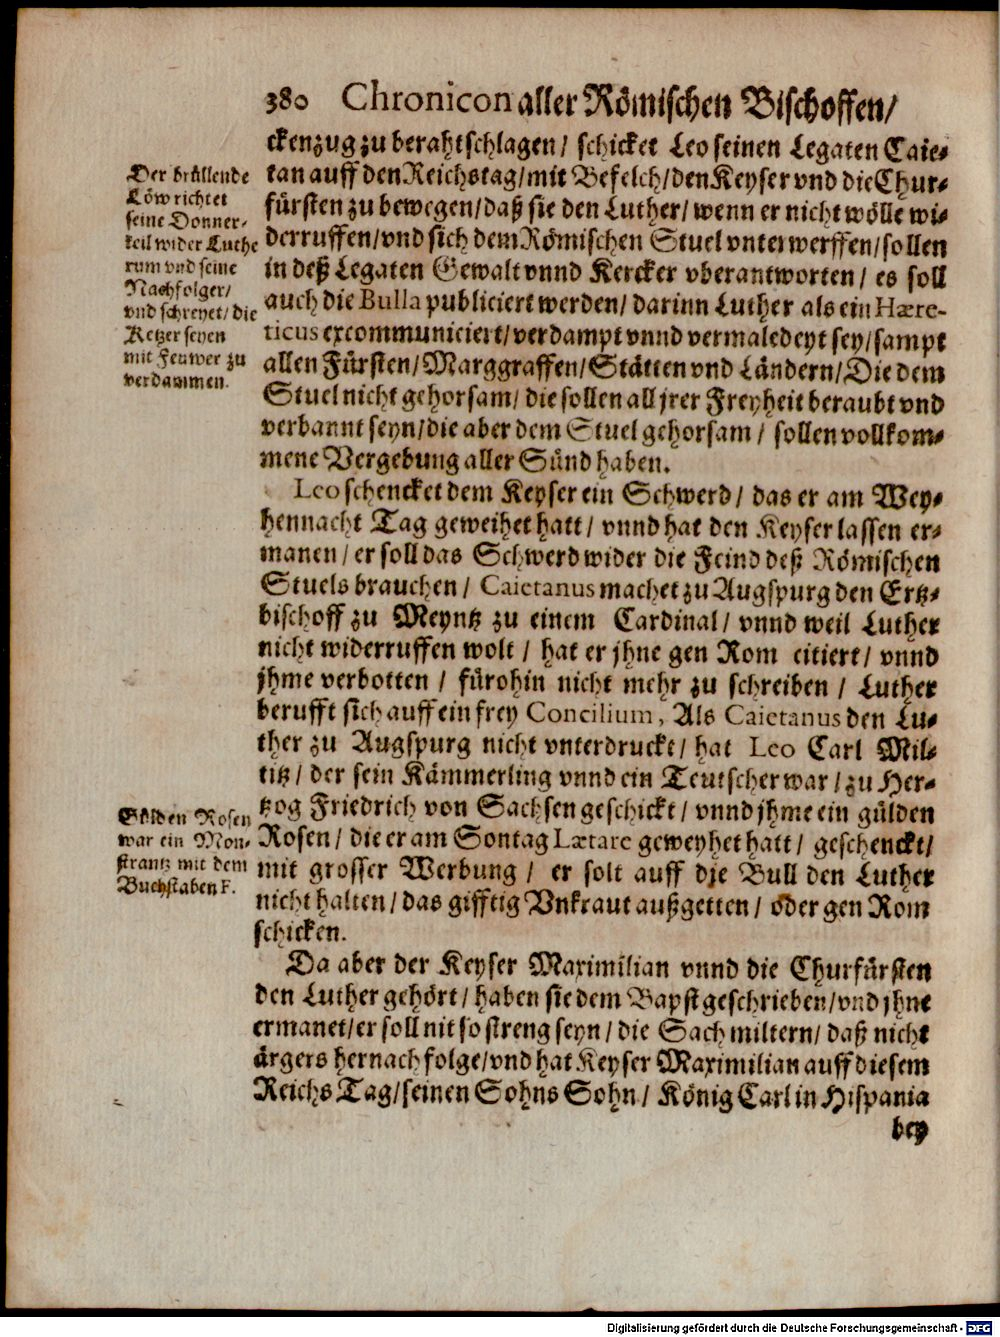 380 Chronicon aller Römischen Bischoffen/
ckenzug zu berahtschlagen/ schicket Leo seinen Legaten Caie-
tan auff den Reichstag/ mit Befelch/ den Keyser vnd die Chur-
fürsten zu bewegen/ daß sie den Luther/ wenn er nicht wölle wi-
derruffen/ vnd sich dem Römischen Stuel vnterwerffen/ sollen
in deß Legaten Gewalt vnnd Kercker vberantworten/ es soll
auch die Bulla publiciert werden/ darinn Luther als ein Hære-
ticus excommuniciert/ verdampt vnnd vermaledeyt sey/ sampt
allen Fürsten/ Marggraffen/ Stätten vnd Ländern/ Die dem
Stuel nicht gehorsam/ die sollen all jrer Freyheit beraubt vnd
verbannt seyn/ die aber dem Stuel gehorsam/ sollen vollkom-
mene Vergebung aller Sünd haben.
Der brüllende
Löw richtet
seine Donner-
keil wider Luthe
rum vnd seine
Nachfolger/
vnd schreyet/ die
Ketzer seyen
mit Feuwer zu
verdammen.
Leo schencket dem Keyser ein Schwerd/ das er am Wey-
hennacht Tag geweihet hatt/ vnnd hat den Keyser lassen er-
manen/ er soll das Schwerd wider die Feind deß Römischen
Stuels brauchen/ Caietanus machet zu Augspurg den Ertz-
bischoff zu Meyntz zu einem Cardinal/ vnnd weil Luther
nicht widerruffen wolt/ hat er jhne gen Rom citiert/ vnnd
jhme verbotten/ fürohin nicht mehr zu schreiben/ Luther
berufft sich auff ein frey Concilium, Als Caietanus den Lu-
ther zu Augspurg nicht vnterdruckt/ hat Leo Carl Mil-
titz/ der sein Kämmerling vnnd ein Teutscher war/ zu Her-
tzog Friedrich von Sachsen geschickt/ vnnd jhme ein gülden
Rosen/ die er am Sontag Lætare geweyhet hatt/ geschenckt/
mit grosser Werbung/ er solt auff die Bull den Luther
nicht halten/ das gifftig Vnkraut außgetten/ oder gen Rom
schicken.
Gülden Rosen
war ein Mon-
strantz mit dem
Buchstaben F.
Da aber der Keyser Maximilian vnnd die Churfürsten
den Luther gehört/ haben sie dem Bapst geschrieben/ vnd jhne
ermanet/ er soll nit so streng seyn/ die Sach miltern/ daß nicht
ärgers hernach folge/ vnd hat Keyser Maximilian auff diesem
Reichs Tag/ seinen Sohns Sohn/ König Carl in Hispania
bey
Digitalisierung gefördert durch die Deutsche Forschungsgemeinschaft - DFG